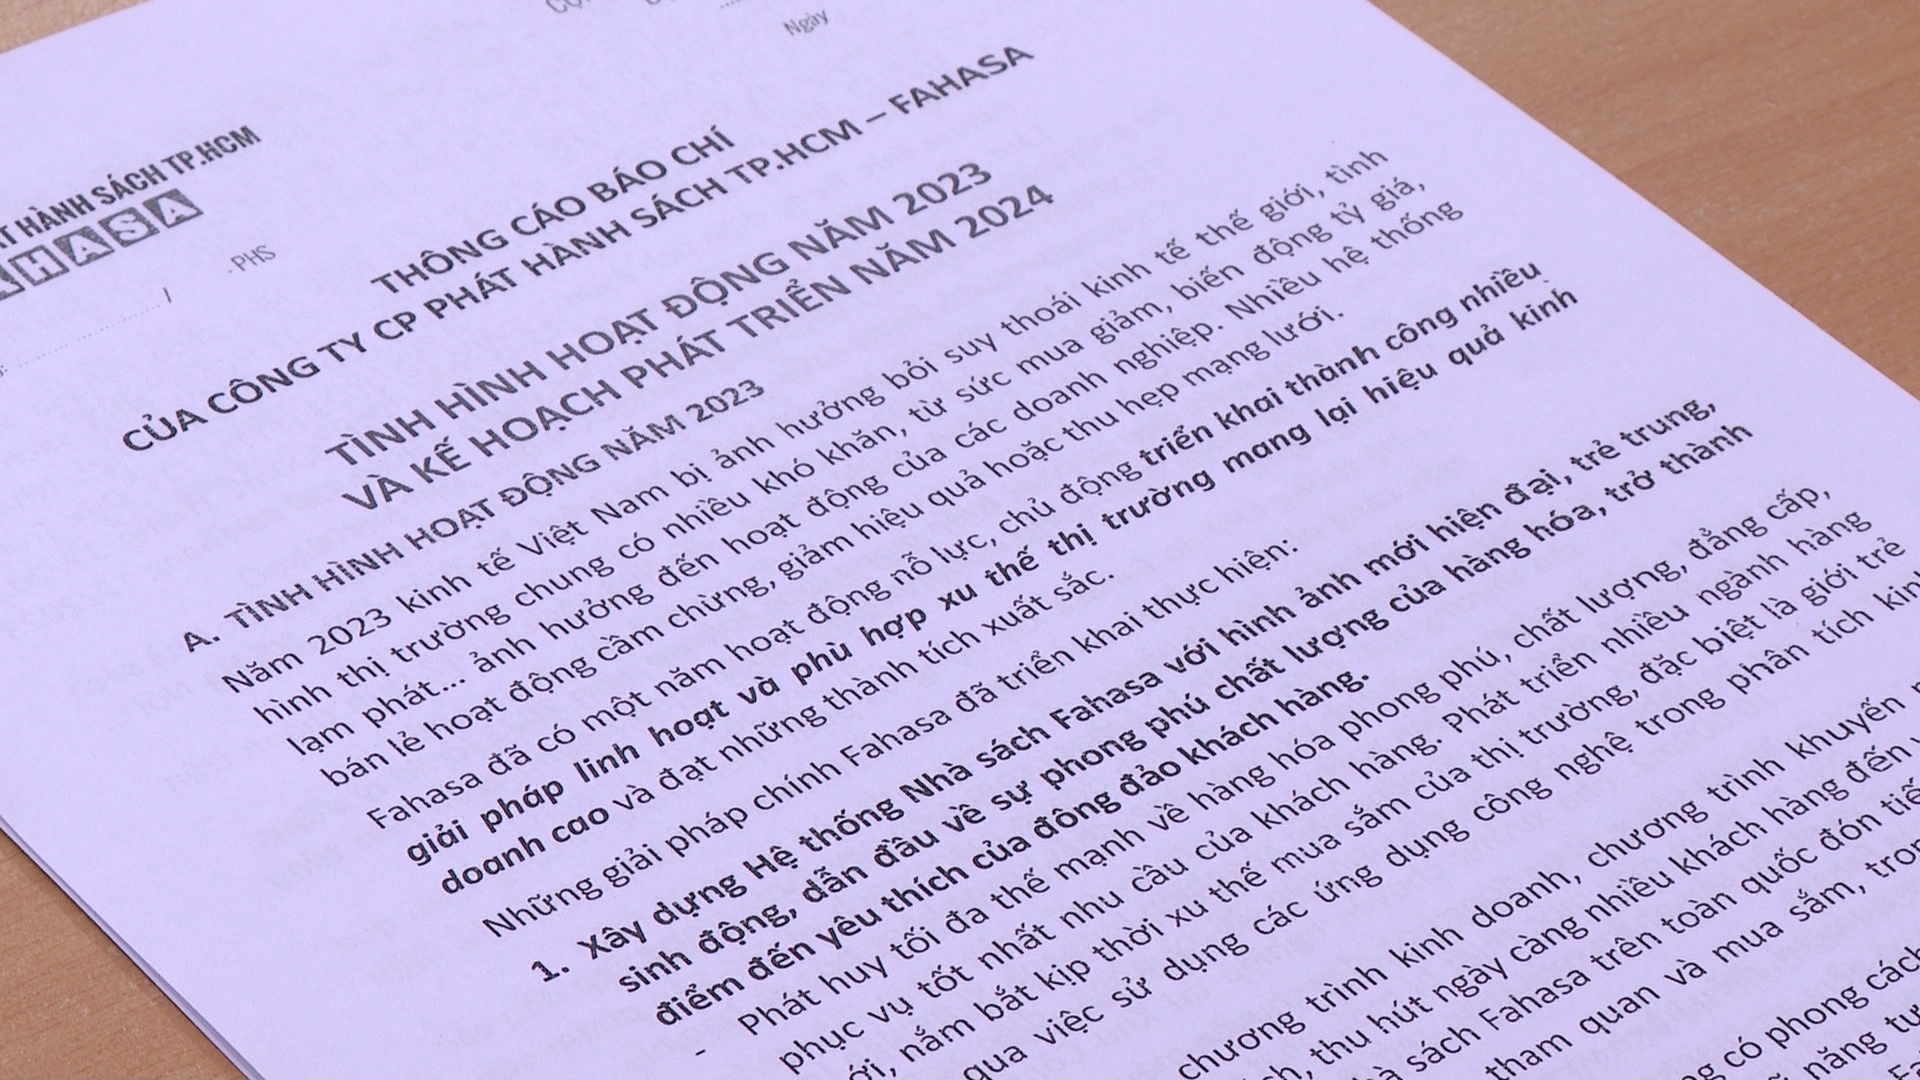 Ngày
HÀNH SÁCH TP.HCM
HASA
- PHS
THÔNG CÁO BÁO CHÍ
CỦA CÔNG TY CP PHÁT HÀNH SÁCH TP.HCM – FAHASA
TÌNH HÌNH HOẠT ĐỘNG NĂM 2023
VÀ KẾ HOẠCH PHÁT TRIỂN NĂM 2024
A. TÌNH HÌNH HOẠT ĐỘNG NĂM 2023
Năm 2023 kinh tế Việt Nam bị ảnh hưởng bởi suy thoái kinh tế thế giới, tình
hình thị trường chung có nhiều khó khăn, từ sức mua giảm, biến động tỷ giá,
lạm phát... ảnh hưởng đến hoạt động của các doanh nghiệp. Nhiều hệ thống
bán lẻ hoạt động cầm chừng, giảm hiệu quả hoặc thu hẹp mạng lưới.
Fahasa đã có một năm hoạt động nỗ lực, chủ động triển khai thành công nhiều
giải pháp linh hoạt và phù hợp xu thế thị trường mang lại hiệu quả kinh
doanh cao và đạt những thành tích xuất sắc.
Những giải pháp chính Fahasa đã triển khai thực hiện:
1. Xây dựng Hệ thống Nhà sách Fahasa với hình ảnh mới hiện đại, trẻ trung,
sinh động, dẫn đầu về sự phong phú chất lượng của hàng hóa, trở thành
điểm đến yêu thích của đông đảo khách hàng.
- Phát huy tối đa thế mạnh về hàng hóa phong phú, chất lượng, đẳng cấp,
phục vụ tốt nhất nhu cầu của khách hàng. Phát triển nhiều ngành hàng
nắm bắt kịp thời xu thế mua sắm của thị trường, đặc biệt là giới trẻ
qua việc sử dụng các ứng dụng công nghệ trong phân tích
chương trình kinh doanh, chương trình khuyến
thu hút ngày càng nhiều khách hàng đến
sách Fahasa trên toàn quốc đón
tham quan và mua sắm,
có phong cách
năng